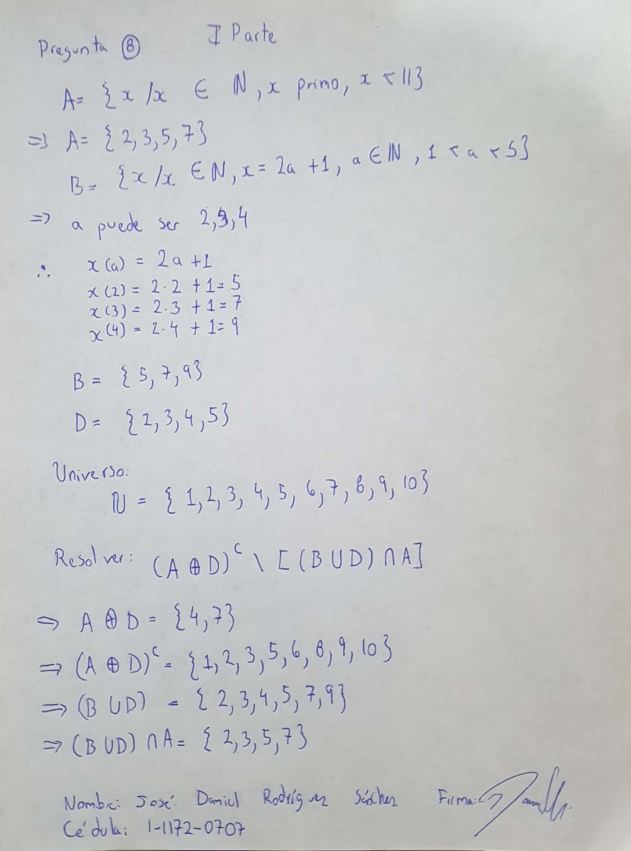 Pregunta ⑧ I Parte
A = {x /x ∈ ℕ, x primo, x < 11}
=> A = {2,3,5,7}
B = {x/x ∈ ℕ, x = 2a +1, a ∈ ℕ, 1 < a < 5}
=> a puede ser 2,3,4
∴ x(a) = 2a +1
x(2) = 2·2 +1 = 5
x(3) = 2·3 +1 = 7
x(4) = 2·4 +1 = 9
B = {5,7,9}
D = {2,3,4,5}
Universo:
ℕ = {1,2,3,4,5,6,7,8,9,10}
Resolver: (A ⊕ D)ᶜ \ [(B ∪ D) ∩ A]
=> A ⊕ D = {4,7}
=> (A ⊕ D)ᶜ = {1,2,3,5,6,8,9,10}
=> (B ∪ D) = {2,3,4,5,7,9}
=> (B ∪ D) ∩ A = {2,3,5,7}
Nombre: José Daniel Rodríguez Sánchez Firma:
Cédula: 1-1172-0707